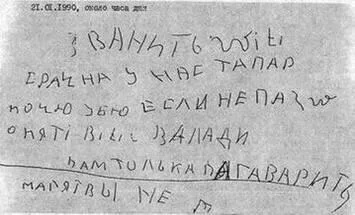 21.01.1990, около часа дня
ЗВАНИТЬ
СРАЧНА У НАС ТАПАР
НОЧЮ УБЮ ЕСЛИ НЕ ПАЗ
ОПЯТІ ВАЛАДИ
ВАМ ТОЛЬКА ПАГАВАРИТЬ
МАЛЯТВЫ НЕ